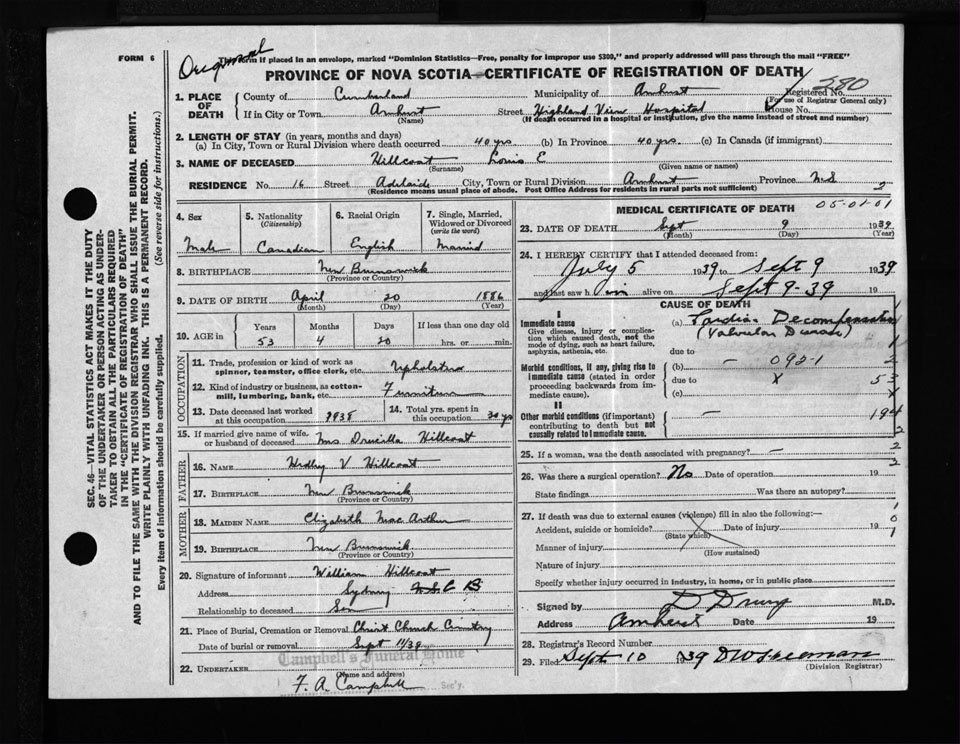 FORM 6
Original
This form if placed in an envelope, marked "Dominion Statistics—Free, penalty for improper use $300," and properly addressed will pass through the mail "FREE"
PROVINCE OF NOVA SCOTIA—CERTIFICATE OF REGISTRATION OF DEATH
Registered No. 380
(For use of Registrar General only)
1. PLACE OF DEATH
County of Cumberland Municipality of Amherst
If in City or Town Amherst Street Highland View Hospital House No.
(Name) (If death occurred in a hospital or institution, give the name instead of street and number)
2. LENGTH OF STAY (in years, months and days)
(a) In City, Town or Rural Division where death occurred 40 yrs (b) In Province 40 yrs. (c) In Canada (if immigrant)
3. NAME OF DECEASED Hillcoat Louis E
(Surname) (Given name or names)
RESIDENCE No. 16 Street Adelaide City, Town or Rural Division Amherst Province N.S
(Residence means usual place of abode. Post Office Address for residents in rural parts not sufficient) 3
4. Sex
Male
5. Nationality
(Citizenship)
Canadian
6. Racial Origin
English
7. Single, Married, Widowed or Divorced
(write the word)
Married
8. BIRTHPLACE New Brunswick
(Province or Country)
9. DATE OF BIRTH April 20 1886
(Month) (Day) (Year)
10. AGE in
Years Months Days If less than one day old
53 4 20 hrs. or min.
OCCUPATION
11. Trade, profession or kind of work as spinner, teamster, office clerk, etc. Upholster
12. Kind of industry or business, as cotton-mill, lumbering, bank, etc. Furniture
13. Date deceased last worked at this occupation 1938
14. Total yrs. spent in this occupation 30 yrs
15. If married give name of wife or husband of deceased Mrs Drucilla Hillcoat
FATHER
16. NAME Hedley V Hillcoat
17. BIRTHPLACE New Brunswick
(Province or Country)
MOTHER
18. MAIDEN NAME Elizabeth Mac Arthur
19. BIRTHPLACE New Brunswick
(Province or Country)
20. Signature of informant William Hillcoat
Address Sydney
Relationship to deceased Son
21. Place of Burial, Cremation or Removal Christ Church Cemetery
Date of burial or removal Sept 11/39
Campbell's Funeral Home
22. UNDERTAKER
(Name and address)
F. A. Campbell Sec'y.
MEDICAL CERTIFICATE OF DEATH 05-01-01
23. DATE OF DEATH Sept 9 1939
(Month) (Day) (Year)
24. I HEREBY CERTIFY that I attended deceased from:
July 5 1939 to Sept 9 1939
and last saw him alive on Sept 9-39 19
CAUSE OF DEATH
I
Immediate cause
Give disease, injury or complication which caused death, not the mode of dying, such as heart failure, asphyxia, asthenia, etc.
(a) Cardiac Decompensation
(Valvular Disease)
due to
Morbid conditions, if any, giving rise to immediate cause (stated in order proceeding backwards from immediate cause).
(b) — 092-1
due to X 53
(c)
II
Other morbid conditions (if important) contributing to death but not causally related to immediate cause.
— 194
25. If a woman, was the death associated with pregnancy? —
26. Was there a surgical operation? No Date of operation 19
State findings Was there an autopsy?
27. If death was due to external causes (violence) fill in also the following:—
Accident, suicide or homicide? Date of injury 19
(State which)
Manner of injury
(How sustained)
Nature of injury
Specify whether injury occurred in industry, in home, or in public place
Signed by D Drury M.D.
Address Amherst Date 19
28. Registrar's Record Number
29. Filed Sept 10 1939
(Division Registrar)
SEC. 46—VITAL STATISTICS ACT MAKES IT THE DUTY
OF THE UNDERTAKER OR PERSON ACTING AS UNDER-
TAKER TO OBTAIN ALL THE PARTICULARS REQUIRED
IN THE "CERTIFICATE OF REGISTRATION OF DEATH"
AND TO FILE THE SAME WITH THE DIVISION REGISTRAR WHO SHALL ISSUE THE BURIAL PERMIT.
WRITE PLAINLY WITH UNFADING INK. THIS IS A PERMANENT RECORD.
Every item of information should be carefully supplied. (See reverse side for instructions.)